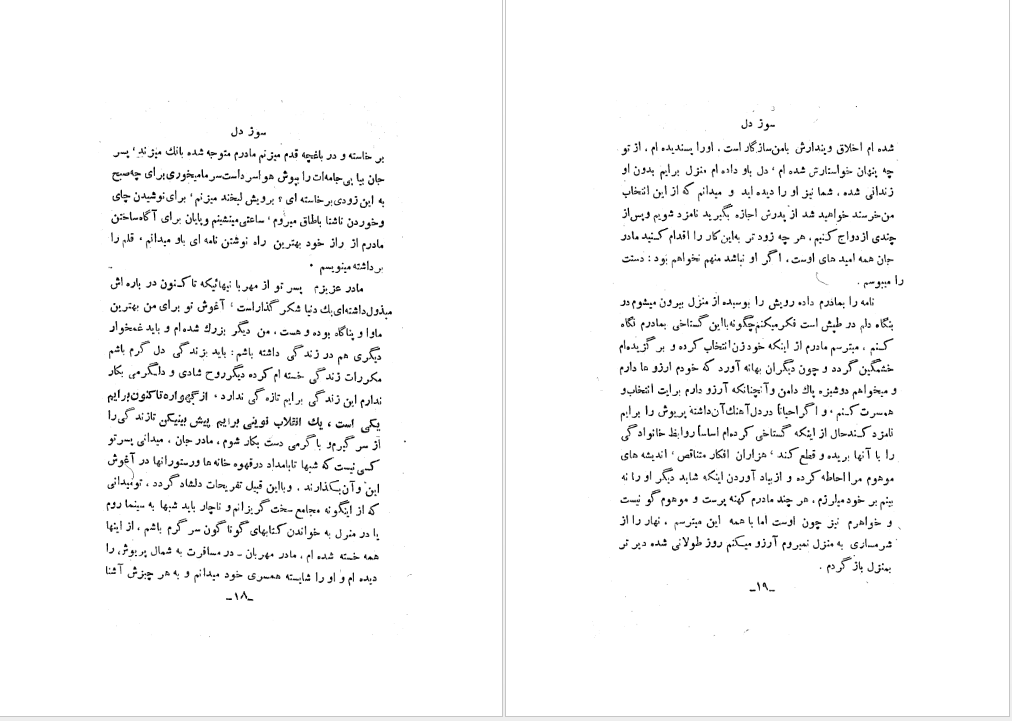 سوز دل
بر خاسته و در باغچه قدم میزنم مادرم متوجه شده بانك میزند، پسر
جان بیا بی جامه‌ات را بپوش هوا سرداست سرما میخوری برای چه صبح
به این زودی بر خاسته ای؟ برویش لبخند میزنم، برای نوشیدن چای
و خوردن ناشتا باطاق میروم، ساعتی مینشینم و پایان برای آگاه ساختن
مادرم از راز خود بهترین راه نوشتن نامه ای باو میدانم. قلم را
برداشته مینویسم.
مادر عزیزم پسر تو از مهربا نیهائیکه تا کنون در باره اش
مبذول داشته‌ای یك دنیا شکر گذار است، آغوش تو برای من بهترین
ماوا و پناگاه بوده و هست. من دیگر بزرك شده ام و باید غمخوار
دیگری هم در زندگی داشته باشم: باید بزندگی دل گرم باشم
مکررات زندگی خسته ام کرده دیگر روح شادی و دلگرمی بکار
ندارم این زندگی برایم تازه گی ندارد. از گهواره تا کنون برایم
یکی است، یك انقلاب نوینی برایم پیش بینی کن تا زندگی را
از سر گیرم و با گرمی دست بکار شوم، مادر جان، میدانی پسر تو
کسی نیست که شبها تا بامداد در قهوه خانه ها و رستورانها در آغوش
این و آن بگذارند. و با این قبیل تفریحات دلشاد گردد، تو میدانی
که از اینگونه مجامع سخت گریزانم و ناچار باید شبها به سینما روم
یا در منزل به خواندن کتابهای گوناگون سر گرم باشم، از اینها
همه خسته شده ام، مادر مهربان ـ در مسافرت به شمال پریوش را
دیده ام و او را شایسته همسری خود میدانم و به هر چیزش آشنا
ـ۱۸ـ
سوز دل
شده ام اخلاق و پندارش بامن سازگار است. او را پسندیده ام، از تو
چه پنهان خواستارش شده ام، دل باو داده ام منزل برایم بدون او
زندانی شده، شما نیز او را دیده اید و میدانم که از این انتخاب
من خرسند خواهید شد از پدرش اجازه بگیرید نامزد شویم و پس از
چندی ازدواج کنیم، هر چه زود تر به این کار را اقدام کنید مادر
جان همه امید های اوست، اگر او نباشد منهم نخواهم بود: دستت
را میبوسم.
نامه را بمادرم داده رویش را بوسیده از منزل بیرون میشوم در
بنگاه دلم در طپش است فکر میکنم چگونه با این گستاخی بمادرم نگاه
کنم، میترسم مادرم از اینکه خود زن انتخاب کرده و بر گزیده‌ام
خشمگین گردد و چون دیگران بهانه آورد که خودم ارزو ها دارم
و میخواهم دوشیزه پاك دامن و آنچنانکه آرزو دارم برایت انتخاب و
همسرت کنم، و اگر احیاناً در دل آهنك آن داشتهٔ پریوش را برایم
نامزد کند حال از اینکه گستاخی کرده‌ام اساساً روابط خانوادگی
را با آنها بریده و قطع کند، هزاران افکار متناقص، اندیشه های
موهوم مرا احاطه کرده و از بیاد آوردن اینکه شاید دیگر او را نه
بینم بر خود میلرزم، هر چند مادرم کهنه پرست و موهوم گو نیست
و خواهرم نیز چون اوست اما با همه این میترسم. نهار را از
شرمساری به منزل نمیروم آرزو میکنم روز طولانی شده دیر تر
بمنزل باز گردم.
ـ۱۹ـ